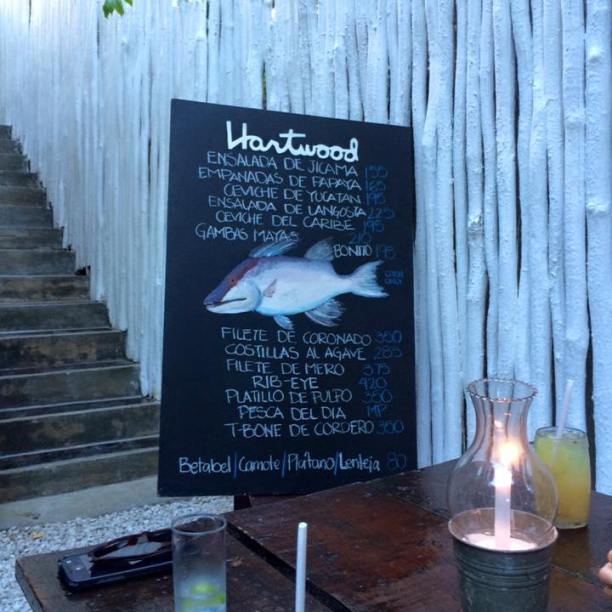 Hartwood
ENSALADA DE JICAMA 155
EMPANADAS DE PAPAYA 165
CEVICHE DE YUCATAN 195
ENSALADA DE LANGOSTA 225
CEVICHE DEL CARIBE 195
GAMBAS MAYAS 210
BONITO 195
FILETE DE CORONADO 350
COSTILLAS AL AGAVE 285
FILETE DE MERO 375
RIB-EYE 420
PLATILLO DE PULPO 350
PESCA DEL DIA MP
T-BONE DE CORDERO 350
Betabel/Camote/Platano/Lenteja 80